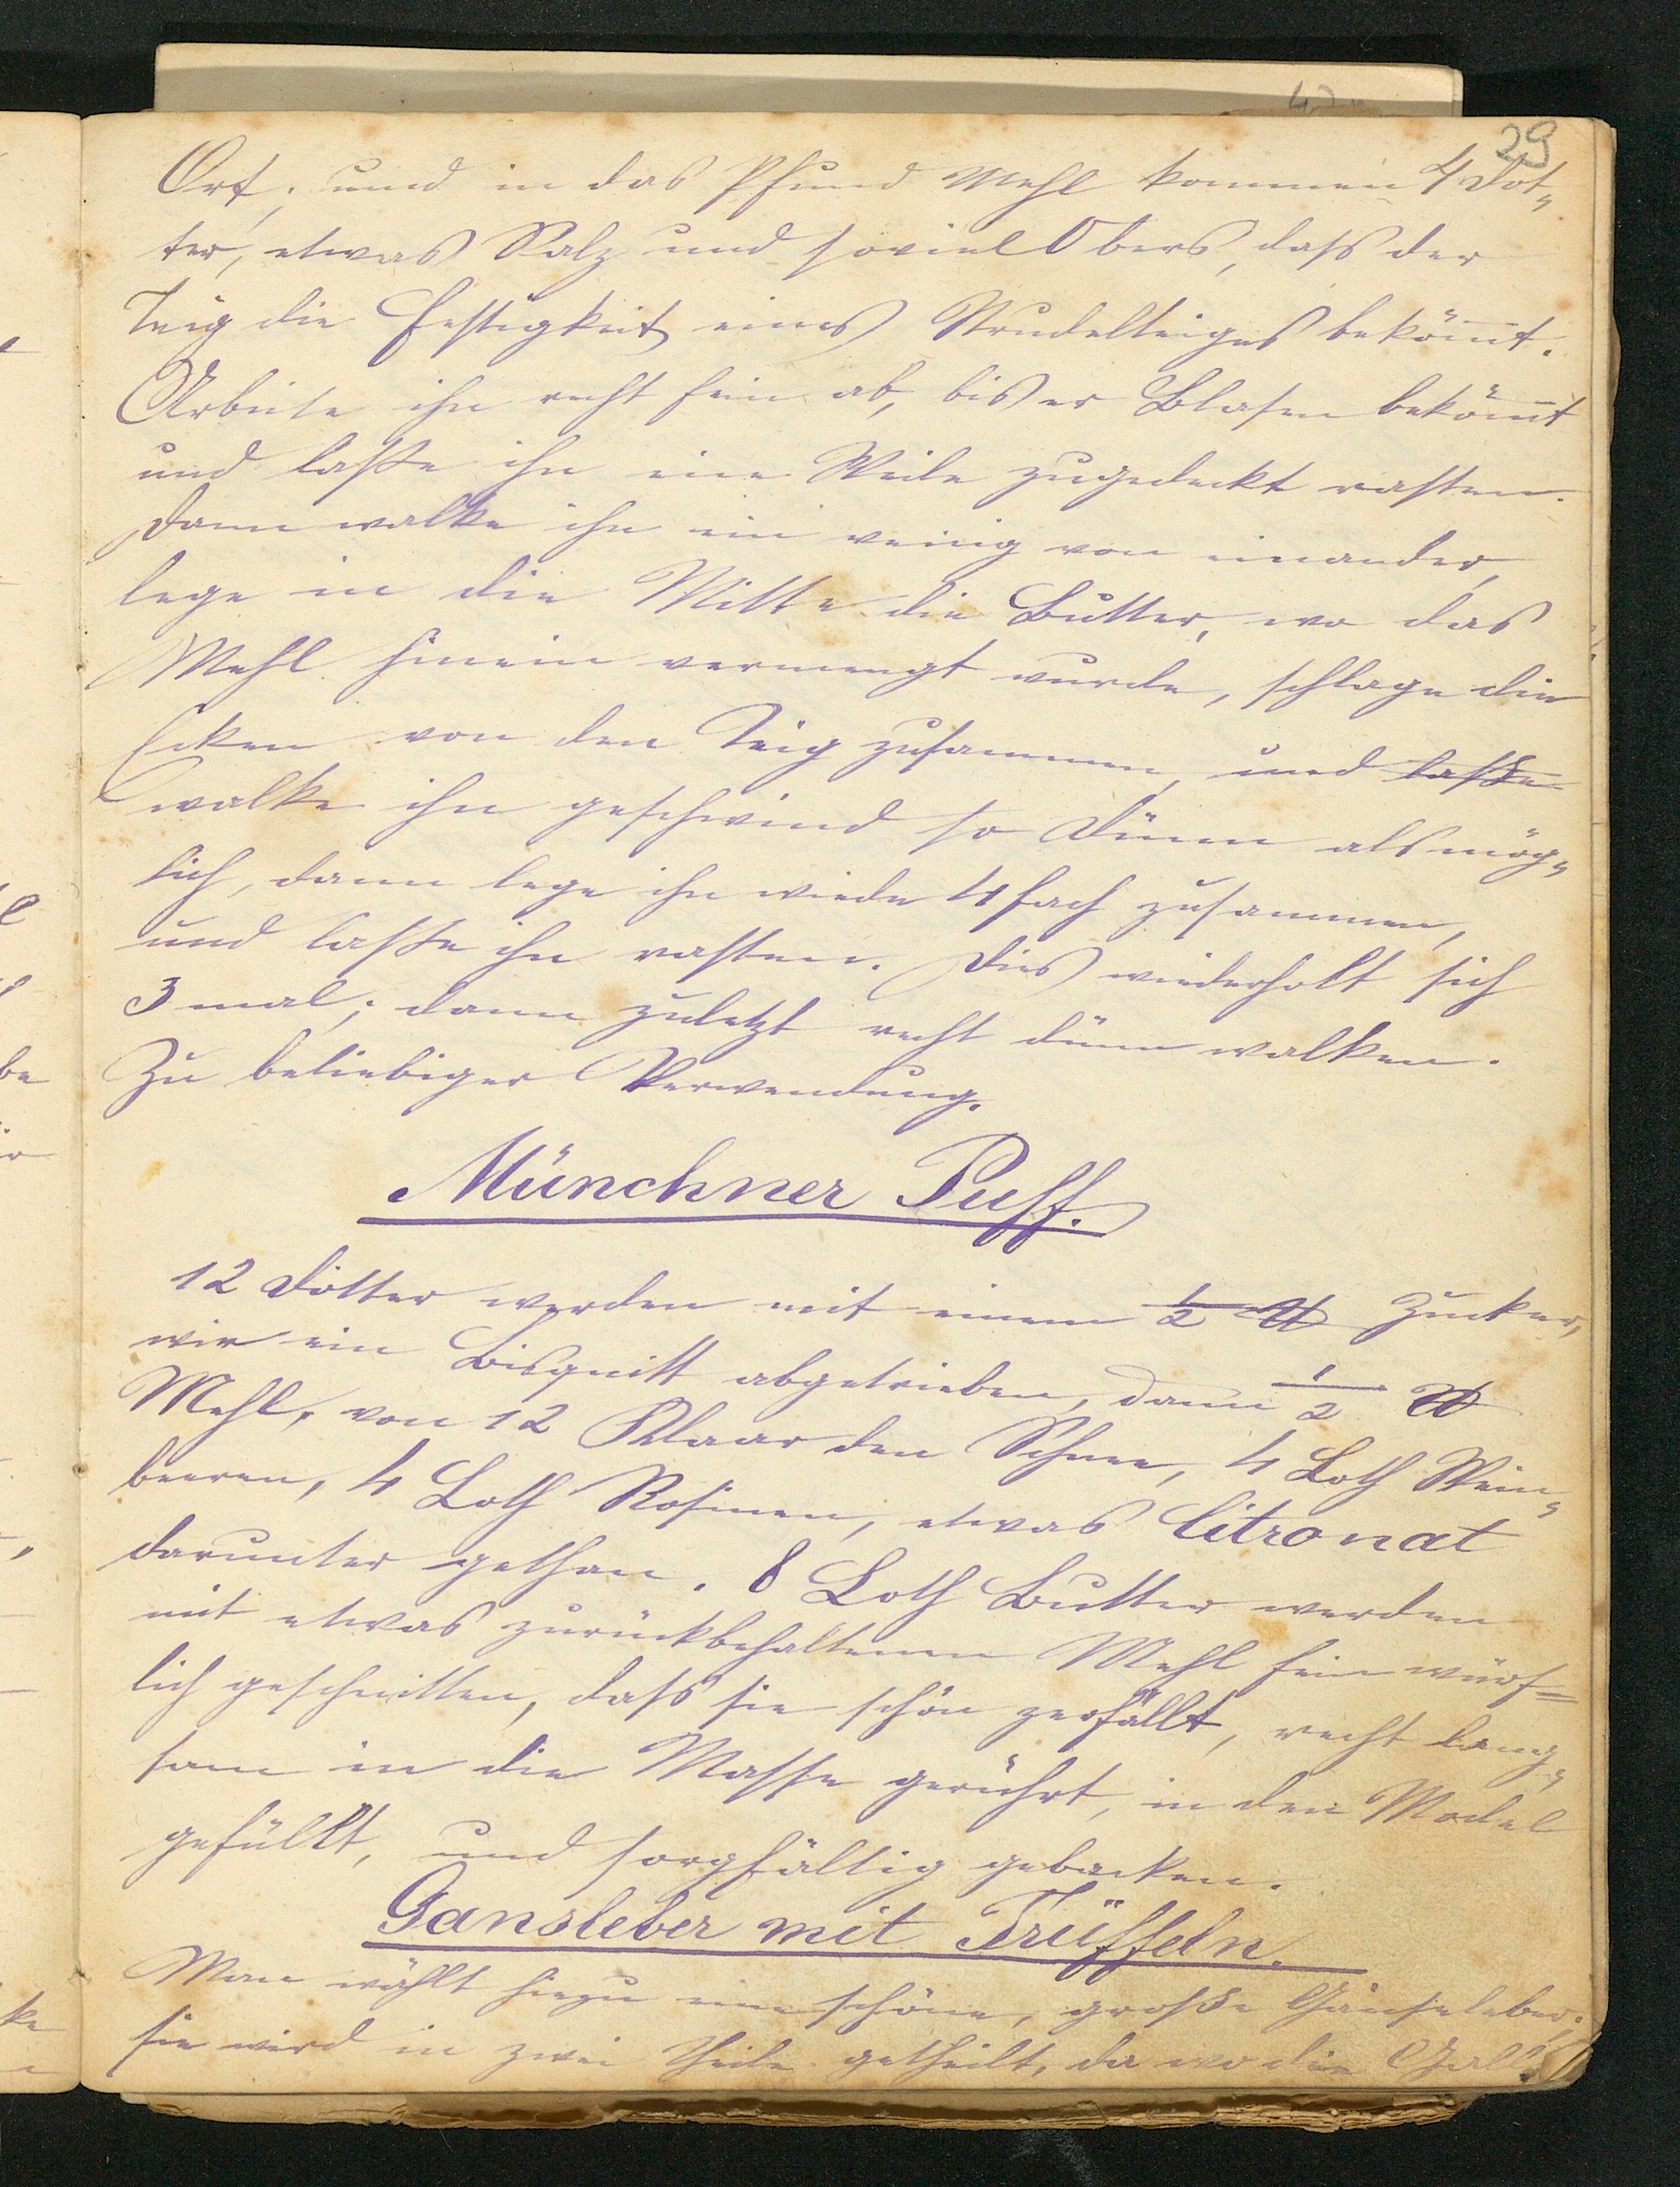 29
Ort; und in das Pfund Mehl kommen 4 Dot„
ter, etwas Salz und soviel Obers, dass der
Teig die Festigkeit eines Strudelteiges bekömmt.
Arbeite ihn recht fein ab, bis er Blasen bekömmt
und lasse ihn eine Weile zugedeckt rasten.
Dann walke ihn ein wenig von einander,
lege in die Mitte die Butter, wo das
Mehl hinein vermengt wurde, schlage die
Ecken von den Teig zusammen, und lasse
walke ihn geschwind so dünn als mög„
lich, dann lege ihn wieder 4 fach zusammen,
und lasse ihn rasten. Dies wiederholt sich
3 mal; dann zuletzt recht dünn walken.
Zu beliebiger Verwendung.
Münchner Puff.
12 Dotter werden mit einem 1/2 ℔ Zucker,
wie ein Bisquitt abgetrieben, dann 1/2 ℔
Mehl, von 12 Klaar den Schnee, 4 Loth Wein„
beeren, 4 Loth Rosinen, etwas Citronat
darunter gethan. 8 Loth Butter werden
mit etwas zurückbehaltenen Mehl fein würf=
lich geschnitten, dass sie schön zerfällt, recht lang„
sam in die Masse gerührt, in den Model
gefüllt, und sorgfältig gebacken.
Gansleber mit Trüffeln.
Man wählt hiezu eine schöne, große Gänseleber;
sie wird in zwei Theile getheilt, da wo die Galle